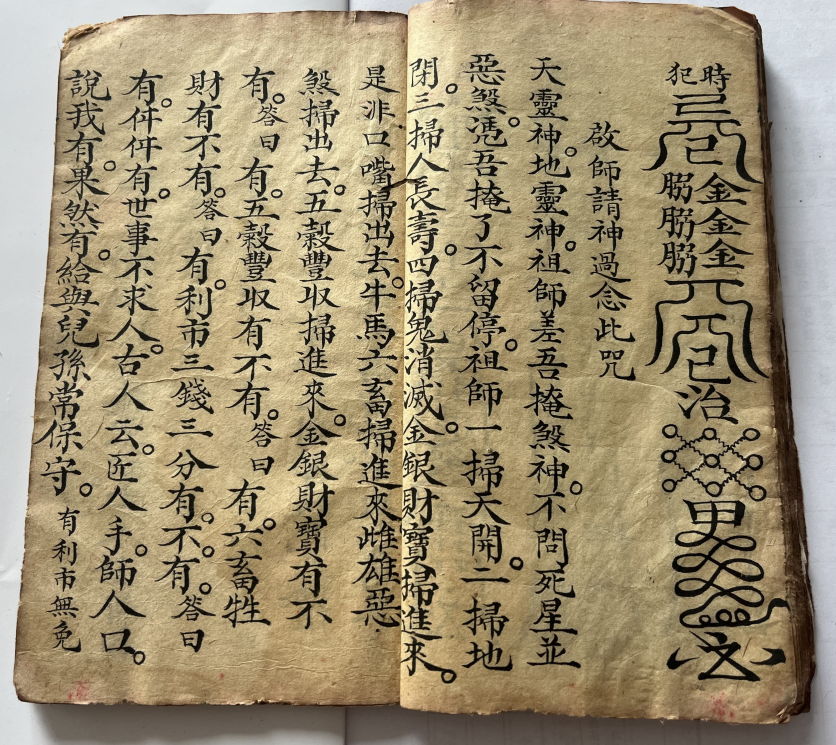 時犯
金金金
治
啟師請神過念此咒
天靈神。地靈神。祖師差吾掩煞神。不問死星並
惡煞。凭吾掩了不留停。祖師一掃天開。二掃地
閉。三掃人長壽。四掃鬼消滅。金銀財寶掃進來。
是非口嘴掃出去。牛馬六畜掃進來雌雄惡
煞掃出去。五穀豐收掃進來。金銀財寶有不
有。答曰有。五穀豐收有不有。答曰有。六畜牲
財有不有。答曰有。利市三錢三分有。不。有。答曰
有。件件有。世事不求人。古人云。匠人手。師人口。
說我有。果然有。給與兒孫常保守。有利市無免